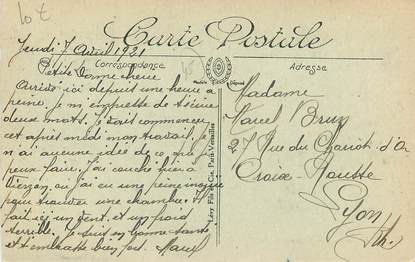 lot
Carte Postale
Jeudi 7 avril 1921
Correspondance
Adresse
Petite bonne chérie
Arrivé ici depuis une heure à
peine. Je m'empresse de t'écrire
deux mots. Je vais commencer
cet après midi mon travail. Je
n'ai aucune idée de ce que je
peux faire. J'ai couché hier à
Vierzon où j'ai eu une peine inouïe
pour trouver une chambre. Il
fait ici un vent et un froid
terrible. Je suis en bonne santé
et t'embrasse bien fort. Marcel
Lévy Fils et Cie, Paris-Versailles
Madame
Marcel Brun
27 Rue du Chariot d'Or
Croix-Rousse
Lyon
Rh.